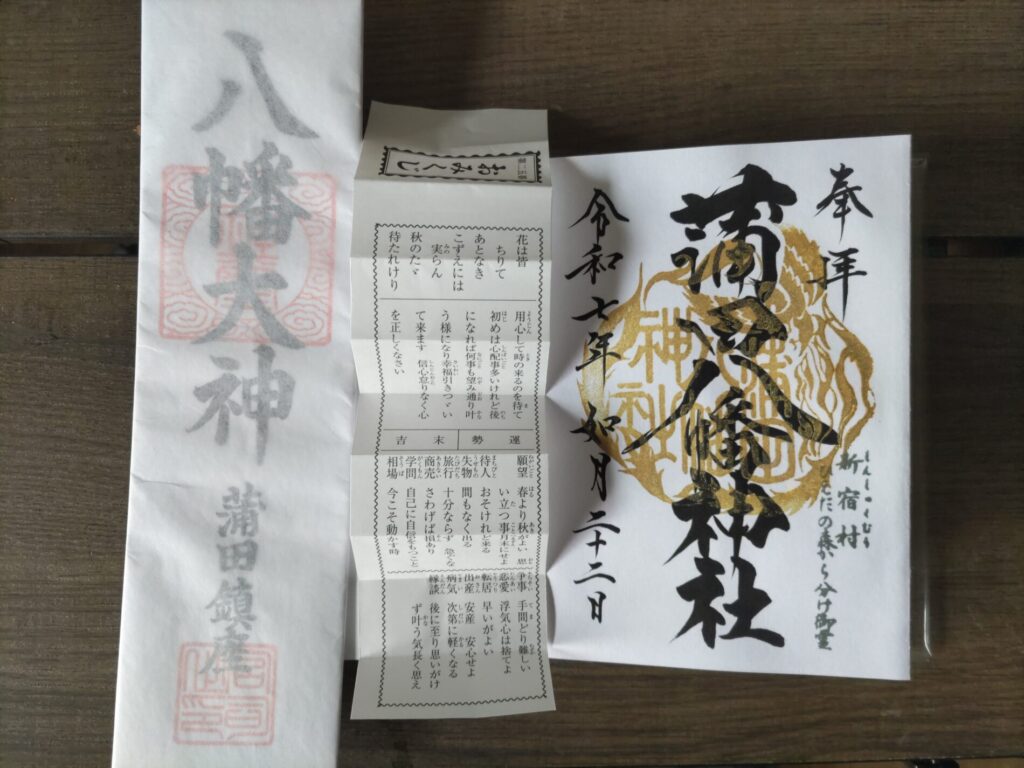 奉拝
蒲田八幡神社
新宿村
しんしゅくむら
の森から分け御霊
令和七年 如月 二十二日
おみくじ
花は皆
ちりて
あとなき
こずえには
実らん
秋のたゞ
待たれけり
用心して時の来るのを待て
初めは心配事多いけれど後
になれば何事も望み通り叶
う様になり幸福引きつゞい
て来ます 信心怠りなく心
を正しくなさい
運勢 末吉
願望 春より秋がよい 思い立つ事月末にせよ
待人 おそけれど来る
失物 間もなく出る
旅行 十分ならず 急ぐな
商売 さわげば損あり
学問 自己に自信をもつこと
相場 今こそ動かす時
争事 手間どり難しい
恋愛 浮気心は捨てよ
転居 早いがよい
出産 安産 安心せよ
病気 次第に軽くなる
縁談 後に至り思いがけず叶う気長く思え
八幡大神
蒲田鎮座